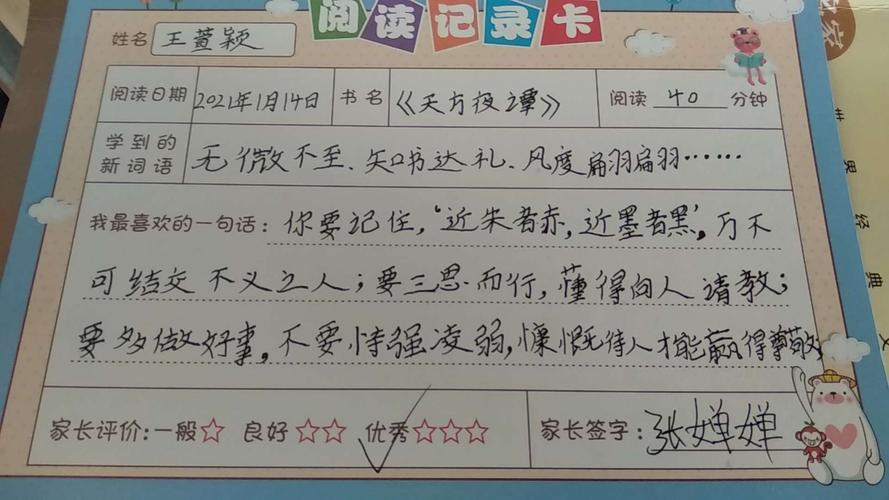 阅读记录卡
姓名 王萱颖
阅读日期 2021年1月14日 书名 《天方夜谭》 阅读 40 分钟
学到的新词语 无微不至、知书达礼、风度翩翩……
我最喜欢的一句话：你要记住，“近朱者赤，近墨者黑”，万不
可结交不义之人；要三思而行，懂得向人请教；
要多做好事，不要恃强凌弱，慷慨待人才能赢得尊敬
家长评价：一般☆ 良好☆☆ 优秀☆☆☆ ✓ 家长签字：张婵婵
世界经典文